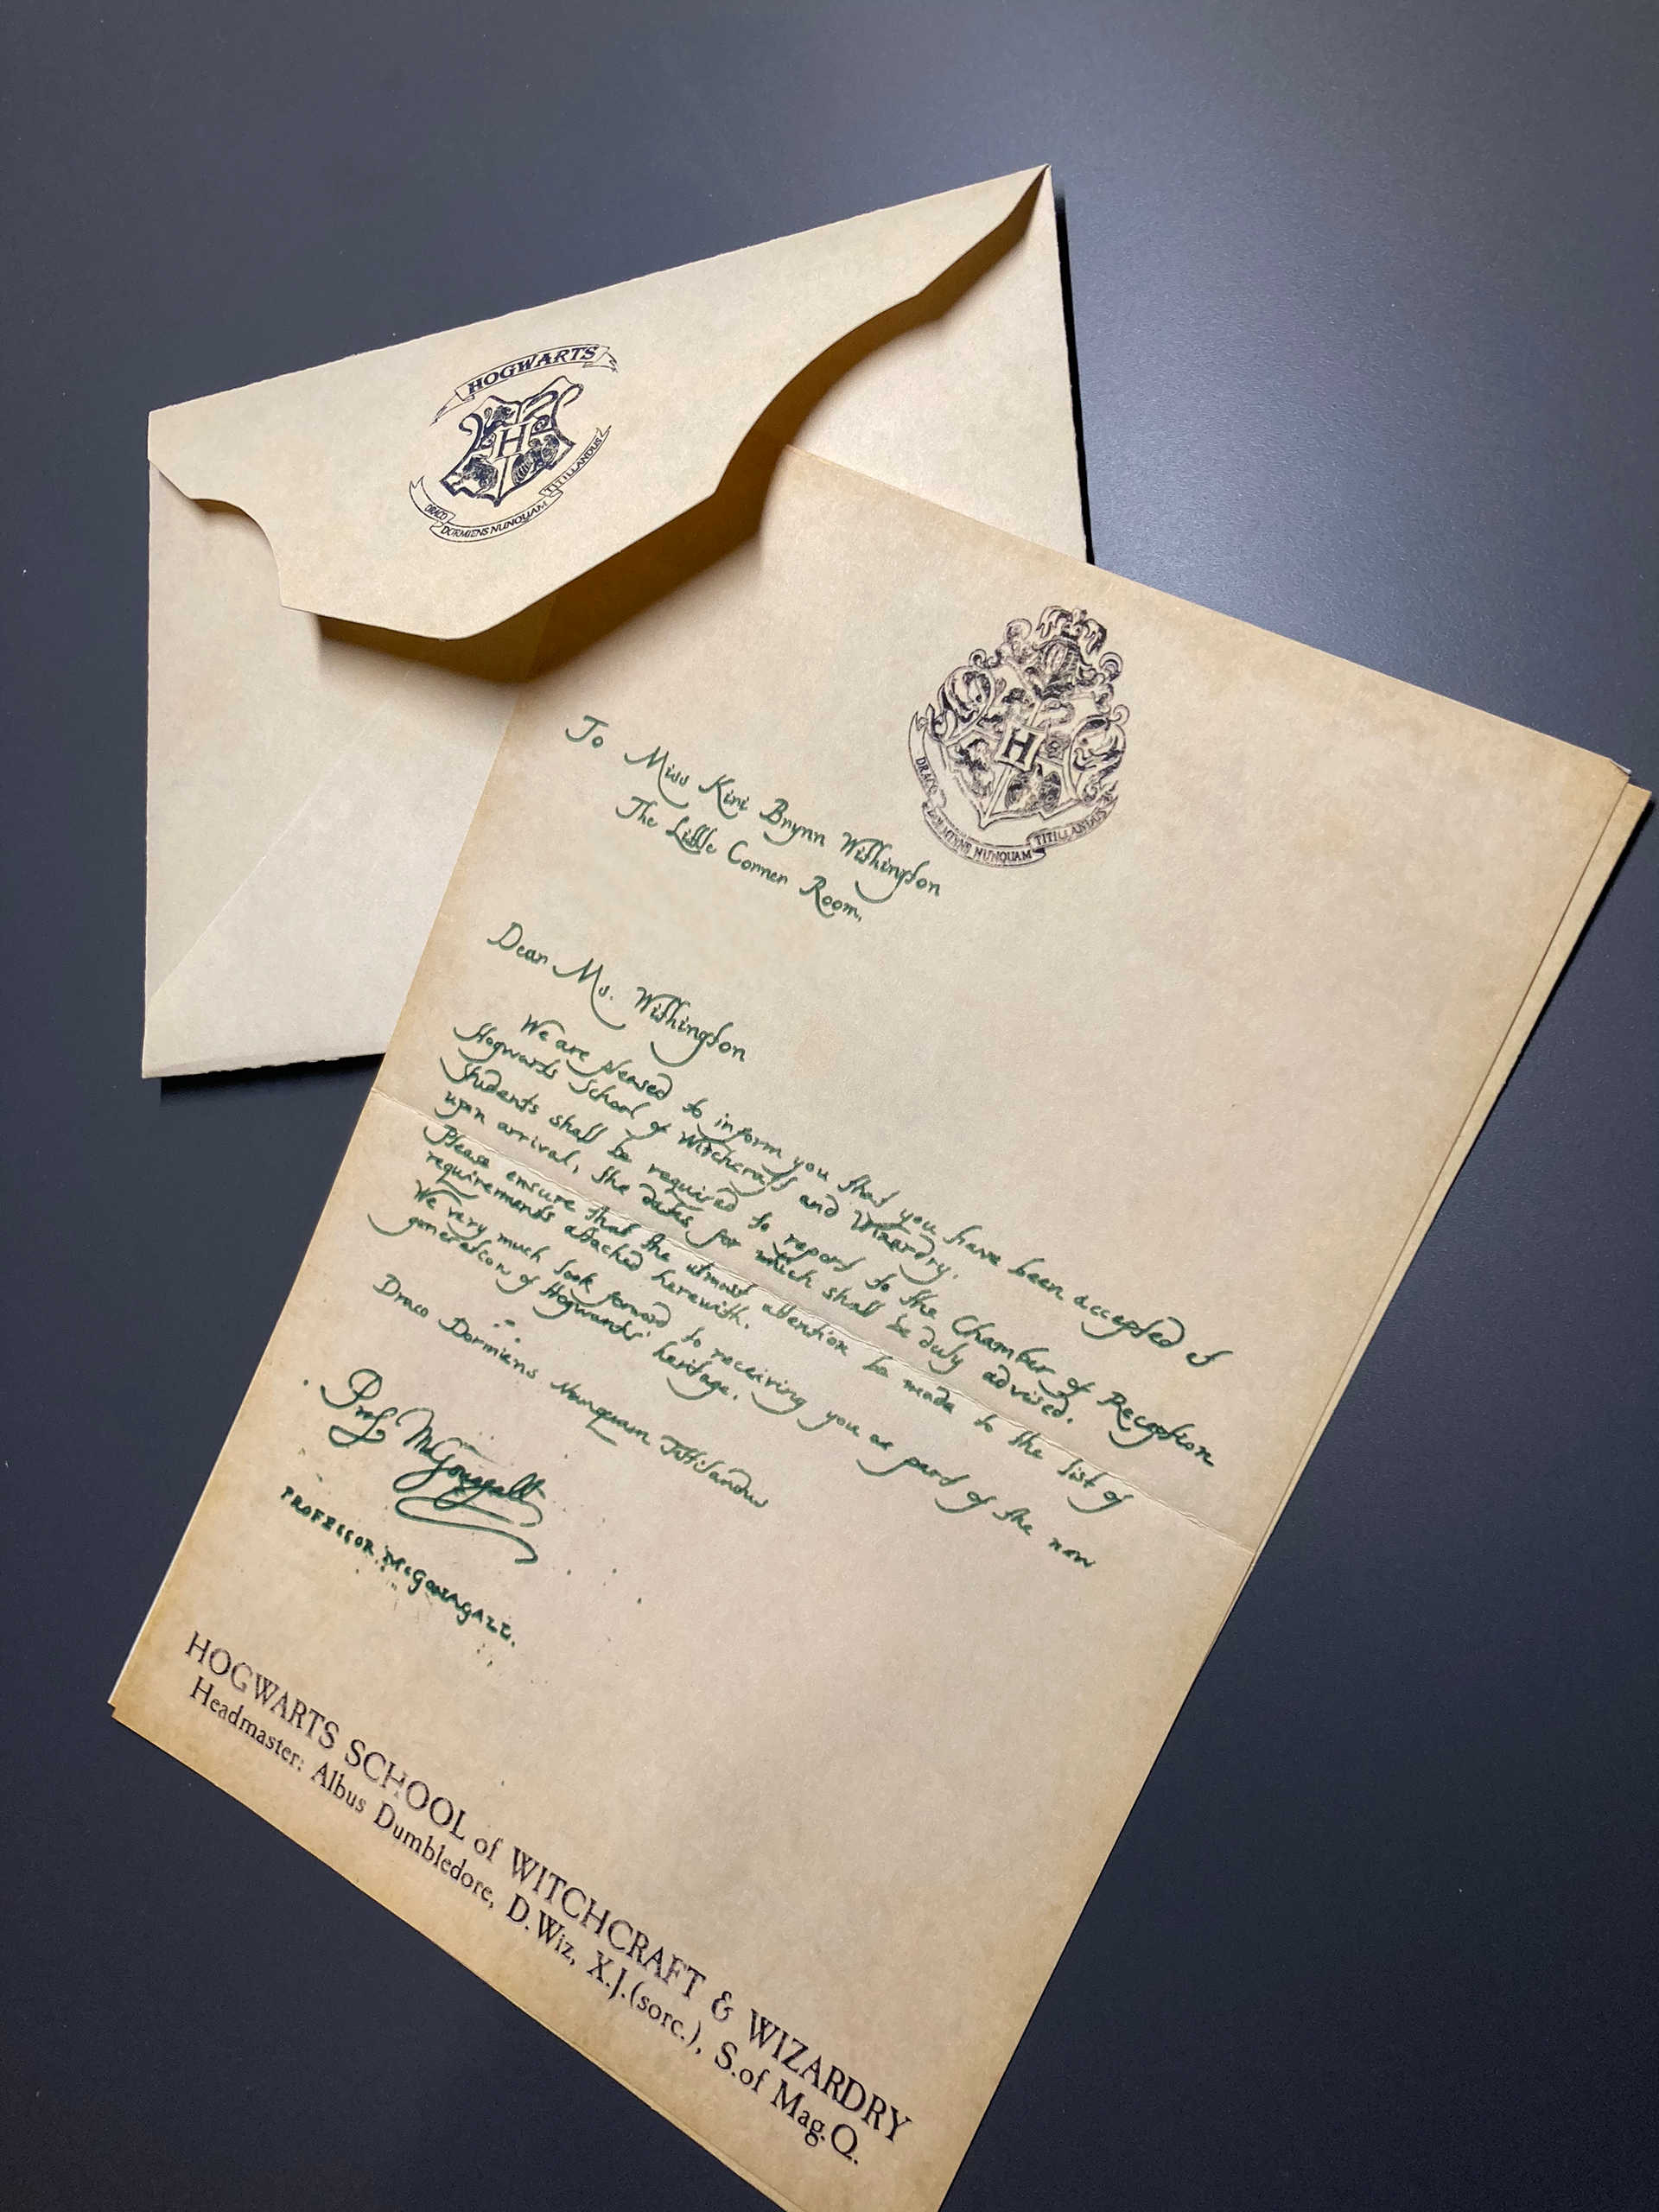 HOGWARTS
H
DRACO DORMIENS NUNQUAM TITILLANDUS
H
DRACO DORMIENS NUNQUAM TITILLANDUS
To Miss Kini Brynn Withington
The Little Corner Room,
Dear Ms. Withington
We are pleased to inform you that you have been accepted at
Hogwarts School of Witchcraft and Wizardry.
Students shall be required to report to the Chamber of Reception
upon arrival, the dates for which shall be duly advised.
Please ensure that the utmost attention be made to the list of
requirements attached herewith.
We very much look forward to receiving you as part of the new
generation of Hogwarts' heritage.
Draco Dormiens Nunquam Titillandus
Prof. McGonagall
PROFESSOR McGONAGALL.
HOGWARTS SCHOOL of WITCHCRAFT & WIZARDRY
Headmaster: Albus Dumbledore, D.Wiz, X.J.(sorc.), S.of Mag.Q.